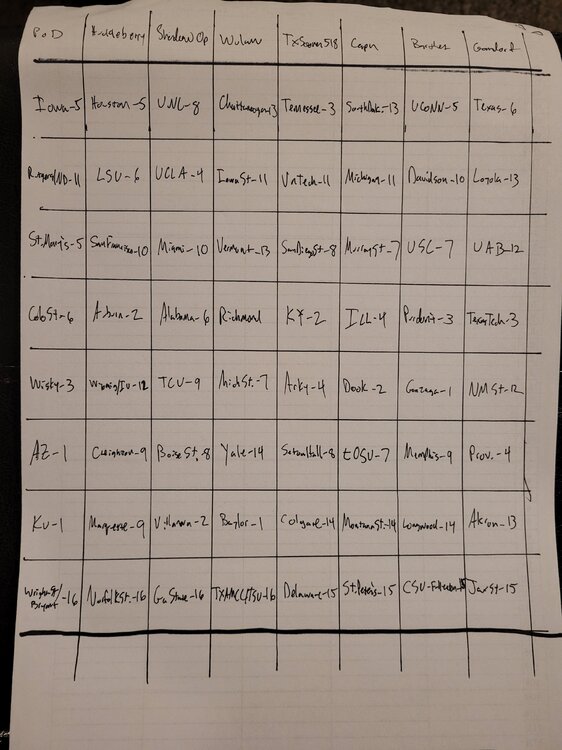 PoD Huckleberry ShadowOp Wulaw TxSooner518 Capn Barches Gomford
Iowa-5 Houston-5 UNC-8 Chattanooga-13 Tennessee-3 South Dak.-13 UCONN-5 Texas-6
Rutgers/ND-11 LSU-6 UCLA-4 Iowa St-11 VaTech-11 Michigan-11 Davidson-10 Loyola-13
St. Mary's-5 San Francisco-10 Miami-10 Vermont-13 San Diego St-8 Murray St-7 USC-7 UAB-12
Colo St-6 Auburn-2 Alabama-6 Richmond KY-2 ILL-4 Purdue-3 Texas Tech-3
Wisky-3 Wyoming/IU-12 TCU-9 Mich St.-7 Arky-4 Dook-2 Gonzaga-1 NM St-12
AZ-1 Creighton-9 Boise St.-8 Yale-14 Seton Hall-8 tOSU-7 Memphis-9 Prov.-4
KU-1 Marquette-9 Villanova-2 Baylor-1 Colgate-14 Montana St.-14 Longwood-14 Akron-13
Wright St/Bryant-16 Norfolk St.-16 Ga State-16 TXAMCC/TSU-16 Delaware-15 St. Peter's-15 CSU-Fullerton-15 Jax St-15